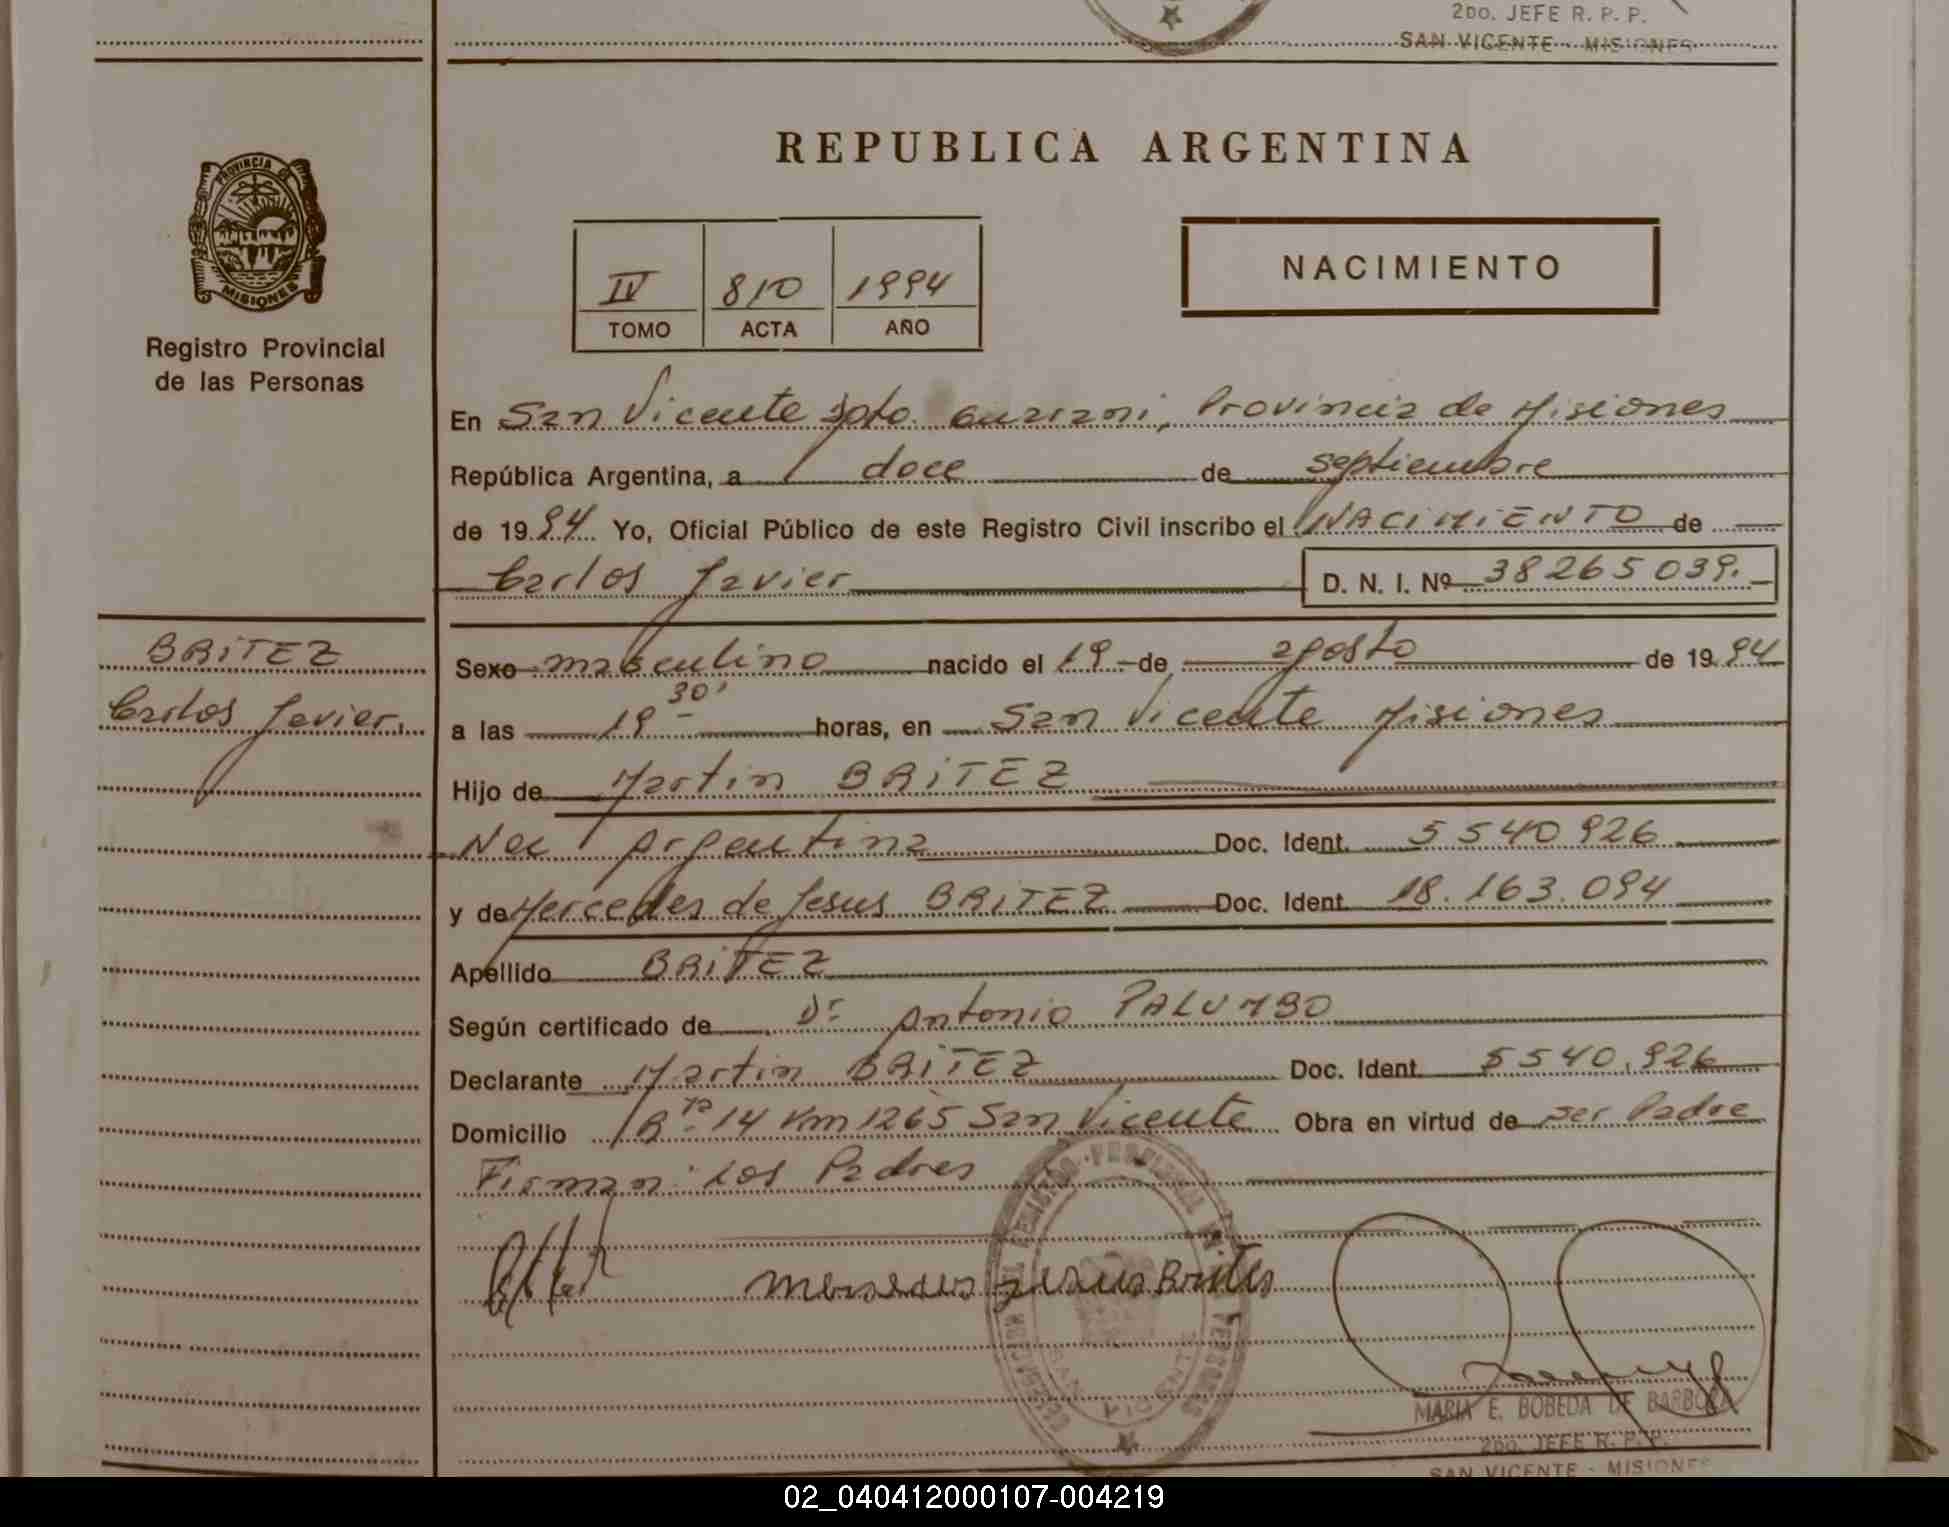 2DO. JEFE R. P. P.
SAN VICENTE - MISIONES
PROVINCIA DE
MISIONES
Registro Provincial
de las Personas
REPUBLICA ARGENTINA
IV 810 1994
TOMO ACTA AÑO
NACIMIENTO
En San Vicente Dpto. Guarani, Provincia de Misiones
República Argentina, a doce de septiembre
de 1994 Yo, Oficial Público de este Registro Civil inscribo el NACIMIENTO de
Carlos Javier D. N. I. Nº 38265039.-
BRITEZ
Carlos Javier.
Sexo masculino nacido el 19 de agosto de 1994
a las 19 30' horas, en San Vicente Misiones
Hijo de Martin BRITEZ
Nac Argentina Doc. Ident. 5540926
y de Mercedes de Jesus BRITEZ Doc. Ident. 18.163.094
Apellido BRITEZ
Según certificado de Dr Antonio PALUMBO
Declarante Martin BRITEZ Doc. Ident. 5540.926
Domicilio Rta 14 Km 1265 San Vicente Obra en virtud de ser Padre
Firman: Los Padres
MARIA E. BOBEDA DE BARBOZA
2DO. JEFE R. P. P.
SAN VICENTE - MISIONES
02_040412000107-004219